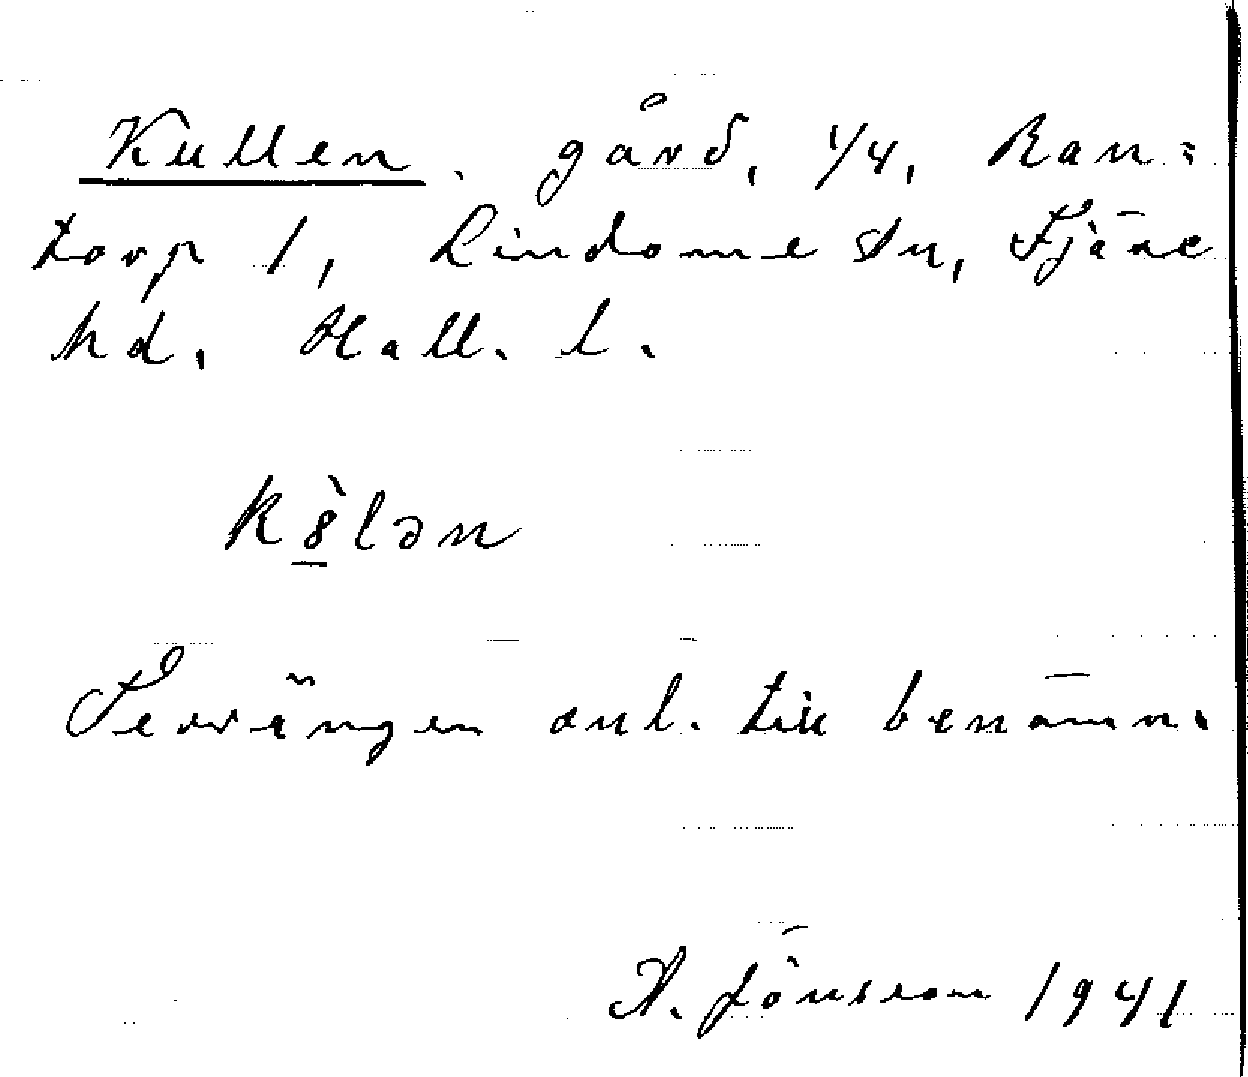 Kullen, gård, 1/4, Ran=
torp 1, Lindome sn, Fjäre
hd. Hall. l.
k8̱̀lən
Terrängen anl. till benämn.
A. Jönsson 1941